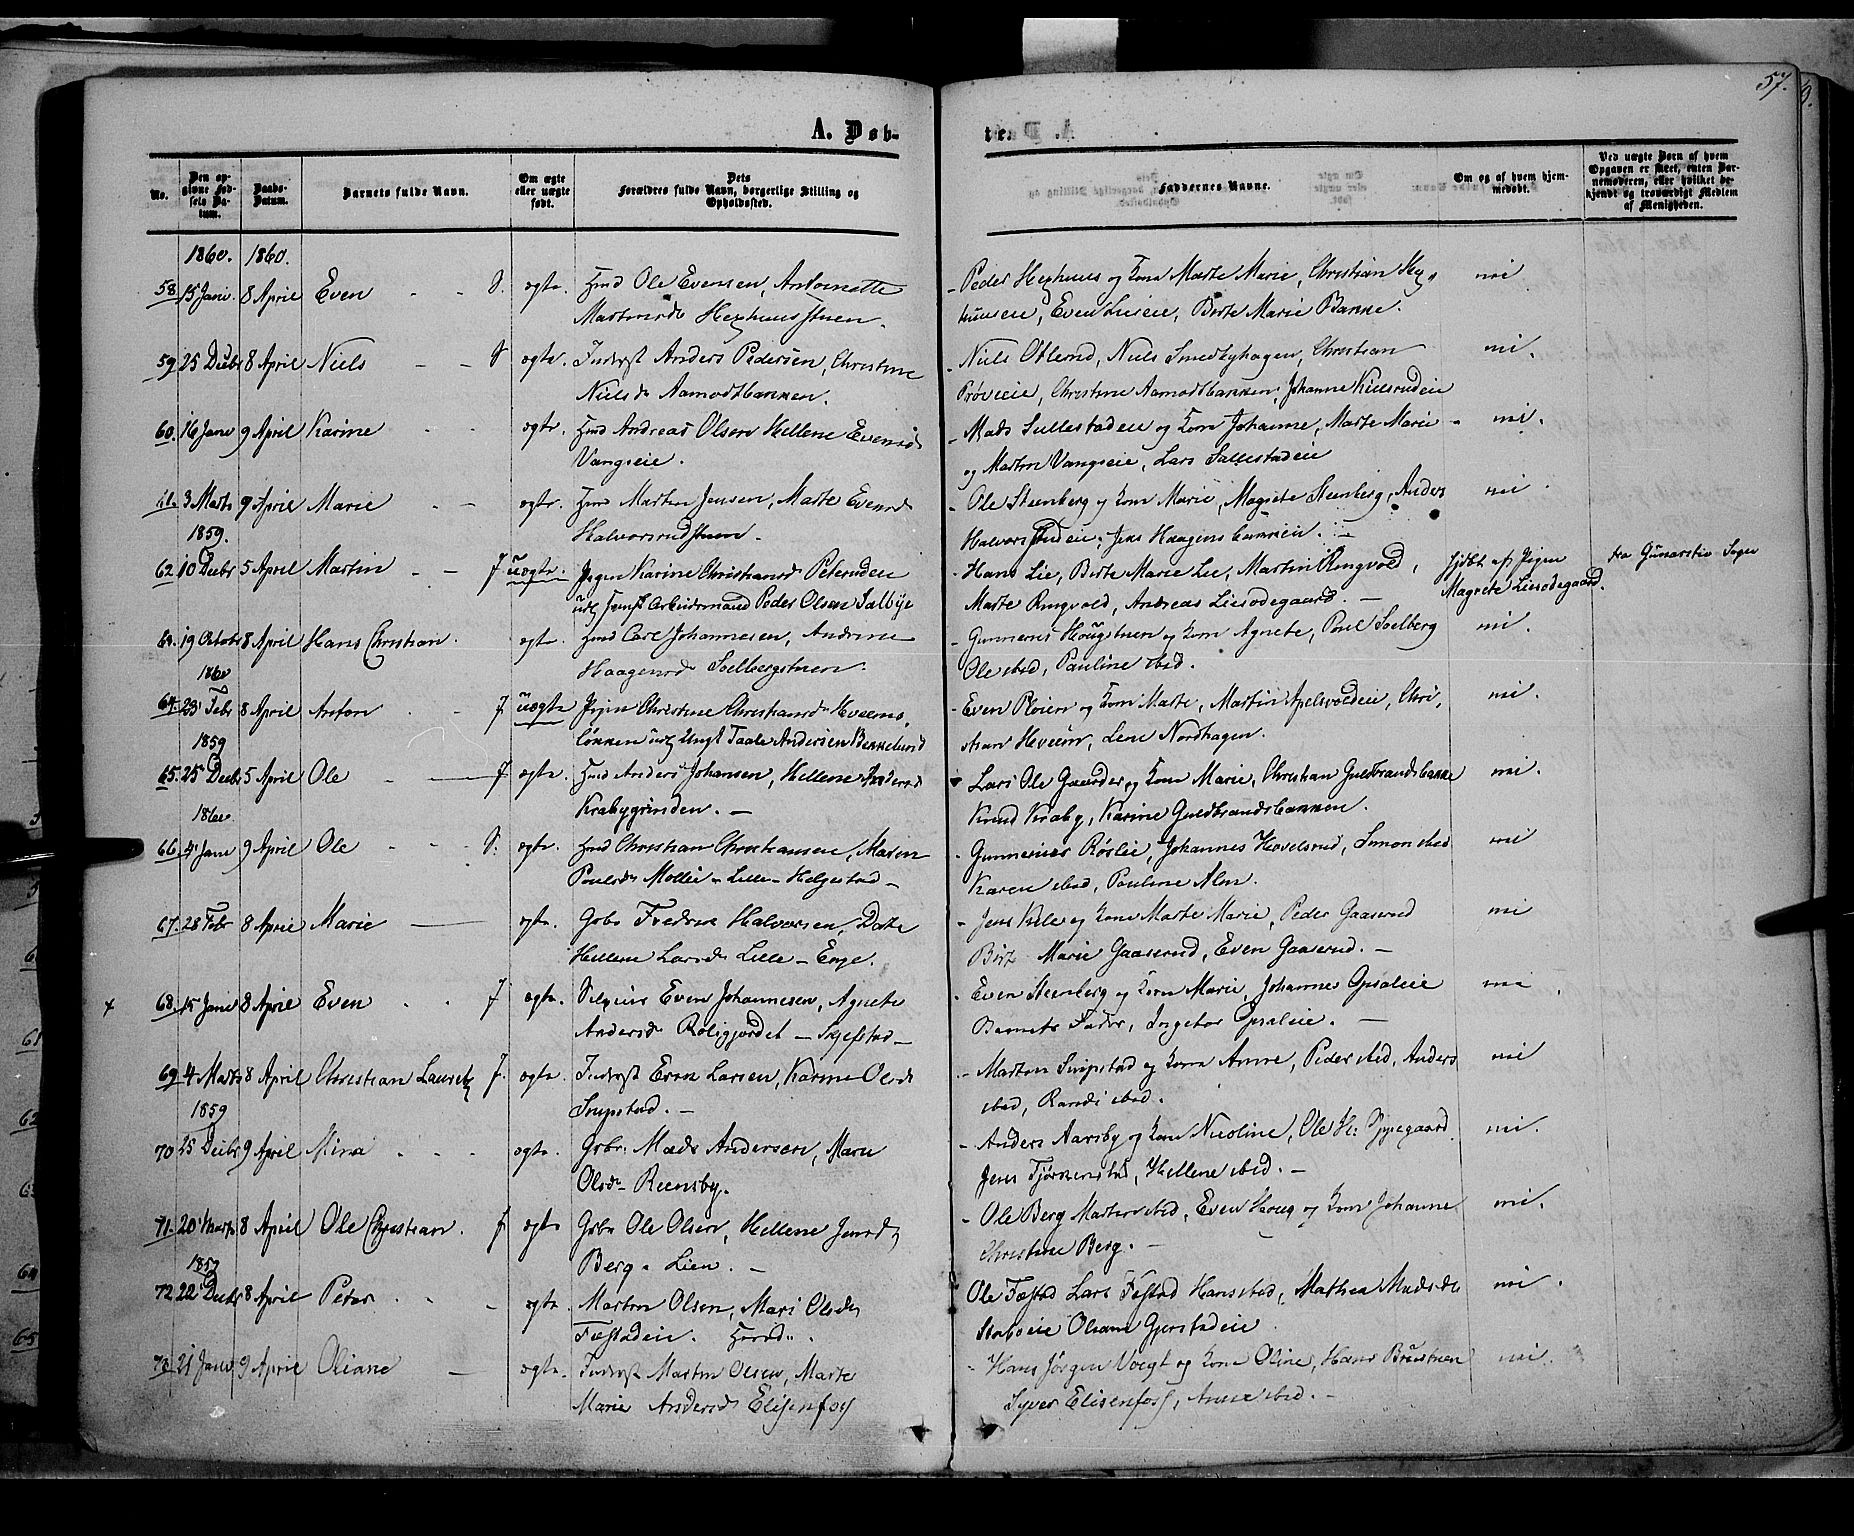 57.
A. Døb-
te.
No.
Den opgivne Fødsels Datum.
Daabs-Datum.
Barnets fulde Navn.
Om ægte eller uægte født.
Dets Forældres fulde Navn, borgerlige Stilling og Opholdssted.
Faddernes Navne.
Om og af hvem hjemmedøbt.
Ved uægte Børn af hvem Opgaven er skeet, enten Barnemoderen, eller hvilket bekjendt og troværdigt Medlem af Menigheden.
1860. 1860.
58. 15 Janu. 8 April Even S. ægte. Hmd Ole Evensen, Antonette
Martinsd. Hexhusstuen.
Peder Hexhuus og Kone Marte Marie, Christian Hex-
huseie, Even Lieeie, Berte Marie Bakke.
nei
59 25 Decbr 8 April Niels S ægte. Inderst Anders Pedersen, Christine
Nielsd. Aamodtbakken.
Niels Oblerud, Niels Smedbyhagen, Christian
Prøveeie, Christine Aamodtbakken, Johanne Kielsrudeie
nei.
60. 16 Janu 9 April Karine ægte. Hmd Andreas Olsen Hellene Evensd.
Vangseie.
Mads Sullestadeie og Kone Johanne, Marte Marie
og Martin Vangseie, Lars Sullestadeie
nei.
61. 3 Marts 9 April Marie ægte. Hmd Marten Jensen, Marte Evensd
Halvorsrudstuen.
Ole Steenberg og Kone Marie, Magrete Steenberg, Anders
Halvorsrudeie, Jens Haagensbakken.
nei
1859.
62 10 Decbr 5 April Martin J uægte. Pigen Karine Christiansd Petersudeie
udl. Arbeidsmand Peder Olsen Sælbye
Hans Lie, Berte Marie Lie, Martin Ringvold,
Marte Ringvold, Andreas Liesødegaard
hjdbt af Pigen
Magrete Liesødegaard.
fra Sogn
63. 19 Octobr 8 April Hans Christian. ægte. Hmd Carl Johannesen, Andrine
Haagensd. Soelbergstuen.
Gunnerius Hougstuen og Kone Agnete, Poul Soelberg
Ole ibid, Pauline ibid.
nei.
1860
64. 23 Febr 8 April Anton J uægte Pigen Christine Christiansd. Hveems-
løkken udl. Ungk Taale Andersen Bekkelund
Even Pløien og Kone Marte, Martin Apelsvoldeie, Chri-
stian Hveem, Lene Nordhagen.
nei.
1859
65. 25 Decbr 5 April Ole J ægte. Hmd Anders Johansen, Hellene Andersd
Krabygrinden.
Lars Ole Gaarder og Kone Marie, Christian Guldbrandsbakke
Knud Kraby, Karine Guldbrandsbakken.
nei.
1860.
66. 4 Janu 9 April Ole S. ægte. Hmd Christian Christiansen, Maren
Poulsd. Mølleie - Lille - Helgestad -
Gunnerius Røslie, Johannes Hovelsrud, Simon ibid
Karen ibid, Pauline Alm.
nei
67. 28 Febr 8 April Marie ægte. Gbr Fredrik Halvorsen, Dorte
Hellene Larsd. Lille - Enge.
Jens Kille og Kone Marte Marie, Peder Gaaserud
Marie Gaaserud, Even Gaaserud.
nei
68. 15 Janu 8 April Even J ægte. Selveier Even Johannesen, Agnete
Andersd. Roligjordet - Skjefstad -
Even Steenberg og Kone Marie, Johanne Opsaleie
Barnets Fader, Ingebor Opsaleie.
nei
69. 4 Marts 8 April Christian Lauritz J. ægte. Inderst Even Larsen, Karine Olsd.
Snipstad.
Marten Snipstad og Kone Anne, Peder ibid, Anders
ibid, Randi ibid.
nei
1859
70 25 Decbr 9 April Mina ægte. Gbr. Mads Andersen, Marie
Olsd. Reensby.
Anders Narsby og Kone Nicoline, Ole H.
Jens Tjørnenstad, Hellene ibid.
nei.
71. 20 Marts 8 April Ole Christian. J. ægte Gbr Ole Olsen, Hellene Jensd.
Berg - Lien.
Ole Berg Marten ibid, Even Houg og Kone Johanne
Christine Berg.
nei.
1859
72. 22 Decbr 8 April Peder ægte. Marten Olsen, Mari Olsd.
Fæstadeie.
Ole Fæstad Lars Fæstad Hans ibid, Mathea Madsd.
Staboeie Oliane Gjerstadeie
nei.
73. 21 Janu 9 April Oliane ægte. Inderst Marten Olsen, Marte
Marie Andersd Elisenfos
Hans Jørgen Voigt og Kone Oline, Hans Bruestuen
Syver Elisenfos, Anne ibid.
nei.